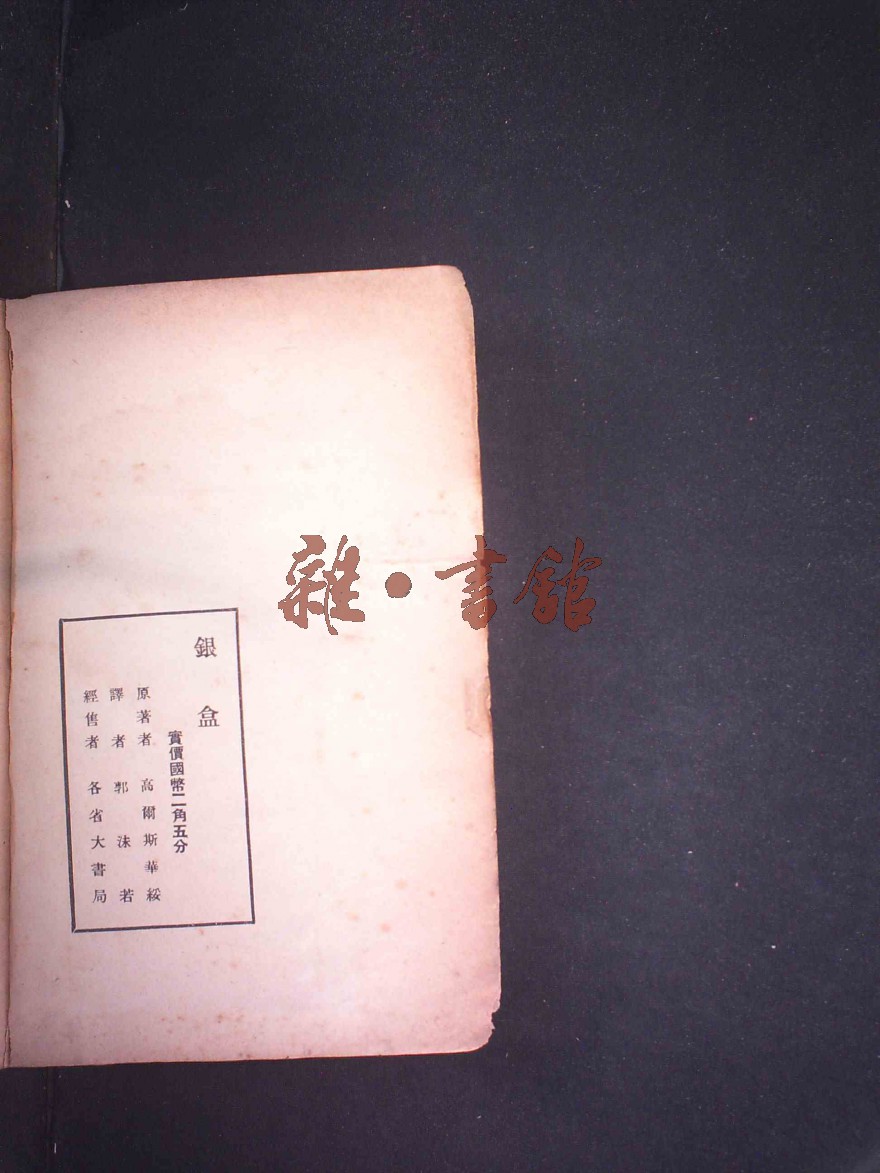 銀盒
實價國幣二角五分
原著者 高爾斯華綏
譯者 郭沫若
經售者 各省大書局
雜·書館